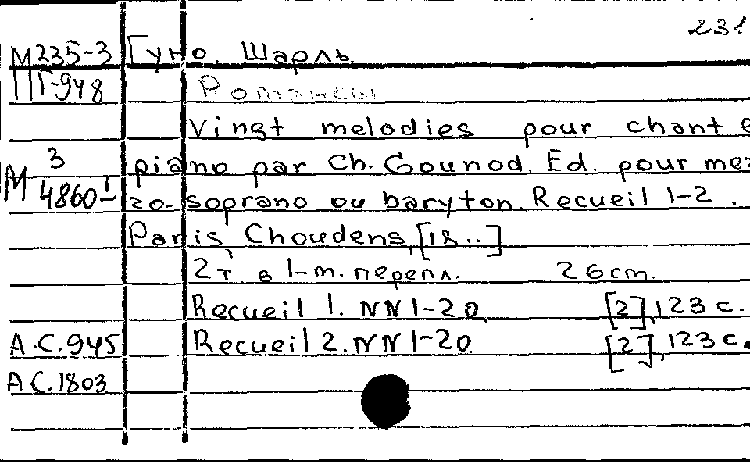 231
М 235-3 Гуно, Шарль
Г-948 Романсы
Vingt melodies pour chant e
М 3 piano par Ch. Gounod. Ed. pour mez
4860-I zo-soprano ou baryton. Recueil 1-2.
Paris, Choudens, [18..]
2т. в 1-м. перепл. 26cm.
Recueil 1. NN 1-20 [2], 123 c.
А.С.945 Recueil 2. NN 1-20 [2], 123 c.
А.С.1803